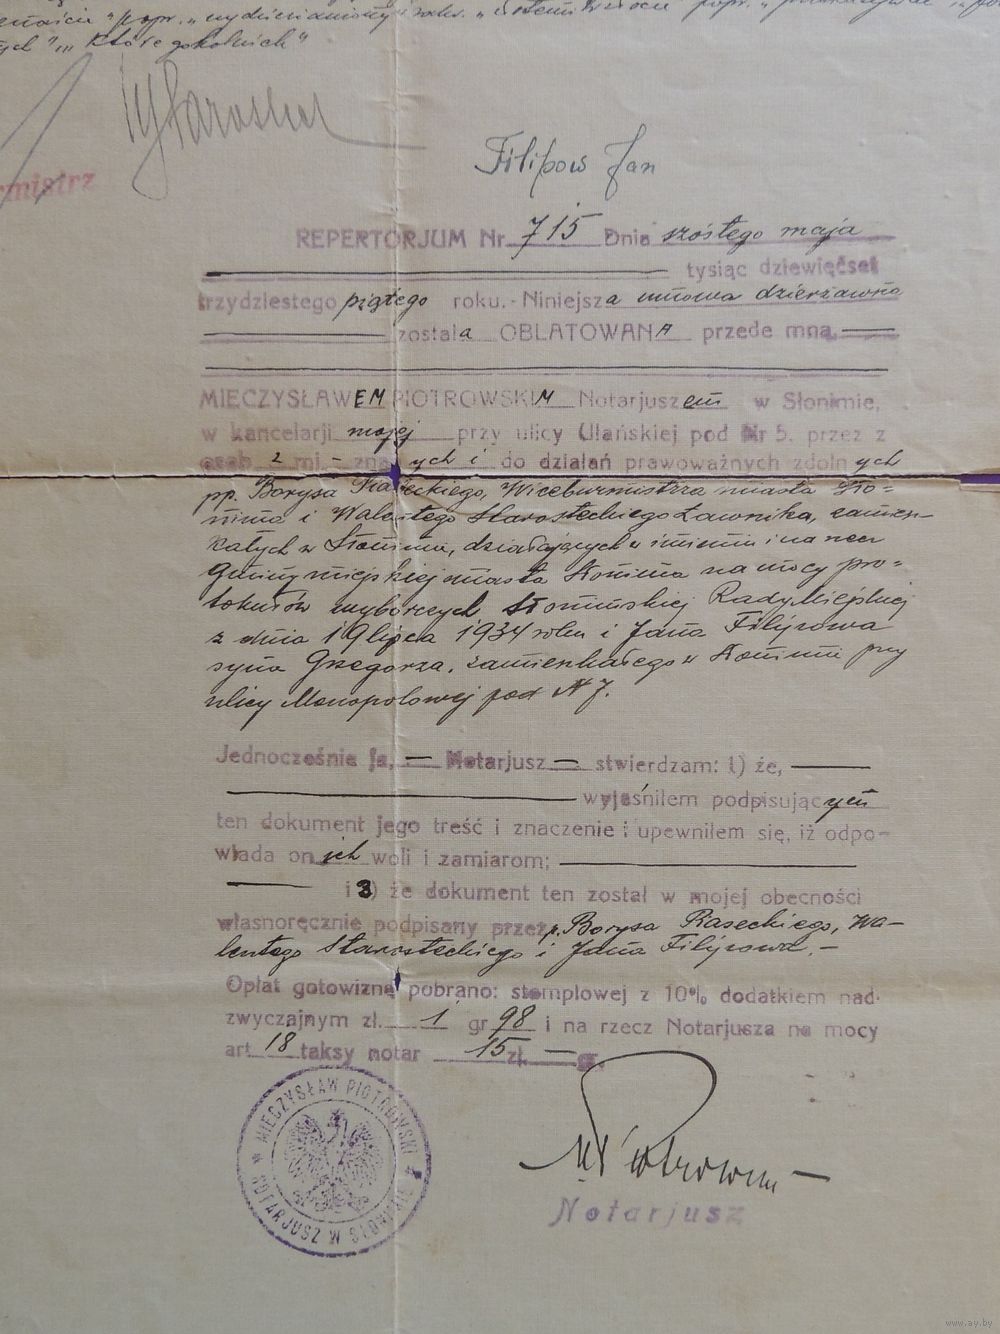 "popr. "
ych" "które gokolwiek"
rmistrz
Filipow Jan
REPERTORJUM Nr. 715 Dnia szóstego maja
tysiąc dziewięćset
trzydziestego piątego roku.- Niniejsza umowa dzierżawna
została OBLATOWANA przede mną,
MIECZYSŁAWEM PIOTROWSKIM Notarjuszem w Słonimie,
w kancelarji mojej przy ulicy Ułańskiej pod Nr 5. przez z
osób 2 mi – znanych i do działań prawoważnych zdolnych
pp. Borysa Piaseckiego, Wiceburmistrza miasta Sło=
nima i Walentego Starosteckiego Ławnika, zamiesz-
kałych w Słonimie, działających w imieniu i na rzecz
Gminy miejskiej miasta Słonima na mocy pro=
tokułów wyborczych Słonimskiej Rady Miejskiej
z dnia 19 lipca 1934 roku i Jana Filipowa
syna Grzegorza, zamieszkałego w Słonimie przy
ulicy Monopolowej pod N 7.
Jednocześnie ja, — Notarjusz — stwierdzam: 1) że,
wyjaśniłem podpisującym
ten dokument jego treść i znaczenie i upewniłem się, iż odpo-
wiada on ich woli i zamiarom;
i 3) że dokument ten został w mojej obecności
własnoręcznie podpisany przez p. Borysa Piaseckiego, Wa-
lentego Starosteckiego i Jana Filipowa. –
Opłat gotowizną pobrano: stemplowej z 10% dodatkiem nad-
zwyczajnym zł. 1 gr 98 i na rzecz Notarjusza na mocy
art 18 taksy notar 15 zł. — gr.
MIECZYSŁAW PIOTROWSKI
NOTARJUSZ W SŁONIMIE
Notarjusz
www.ay.by